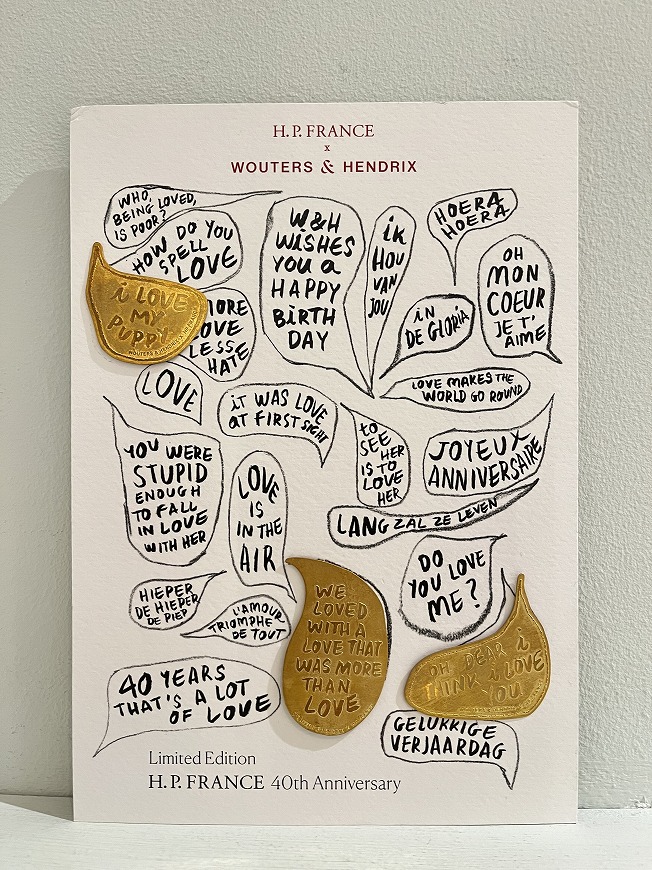 H.P. FRANCE
x
WOUTERS & HENDRIX
WHO,
BEING LOVED,
IS POOR?
HOW DO YOU
SPELL
LOVE
i LOVE
MY
PUPPY
MORE
LOVE
LESS
HATE
W&H
WISHES
YOU a
HAPPY
BiRTH
DAY
iK
HOU
VAN
JOU
HOERA
HOERA
iN
DE GLORiA
OH
MON
COEUR
JE T'
AIME
LOVE
iT WAS LOVE
aT FiRST SIGHT
LOVE MAKES THE
WORLD GO ROUND
to
SEE HER
IS TO
LOVE
HER
JOYEUX
ANNIVERSAIRE
YOU WERE
STUPID
ENOUGH
TO FALL
IN LOVE
WITH HER
LOVE
IS
IN THE
AIR
LANG ZAL ZE LEVEN
DO
YOU LOVE
ME?
HIEPER
DE HIEPER
DE PIEP
L'AMOUR
TRIOMPHE
DE TOUT
WE
LOVED
WITH A
LOVE THAT
WAS MORE
THAN
LOVE
OH DEAR i
THINK i LOVE
YOU
40 YEARS
THAT'S A LOT
OF LOVE
GELUKKIGE
VERJAARDAG
Limited Edition
H.P. FRANCE 40th Anniversary